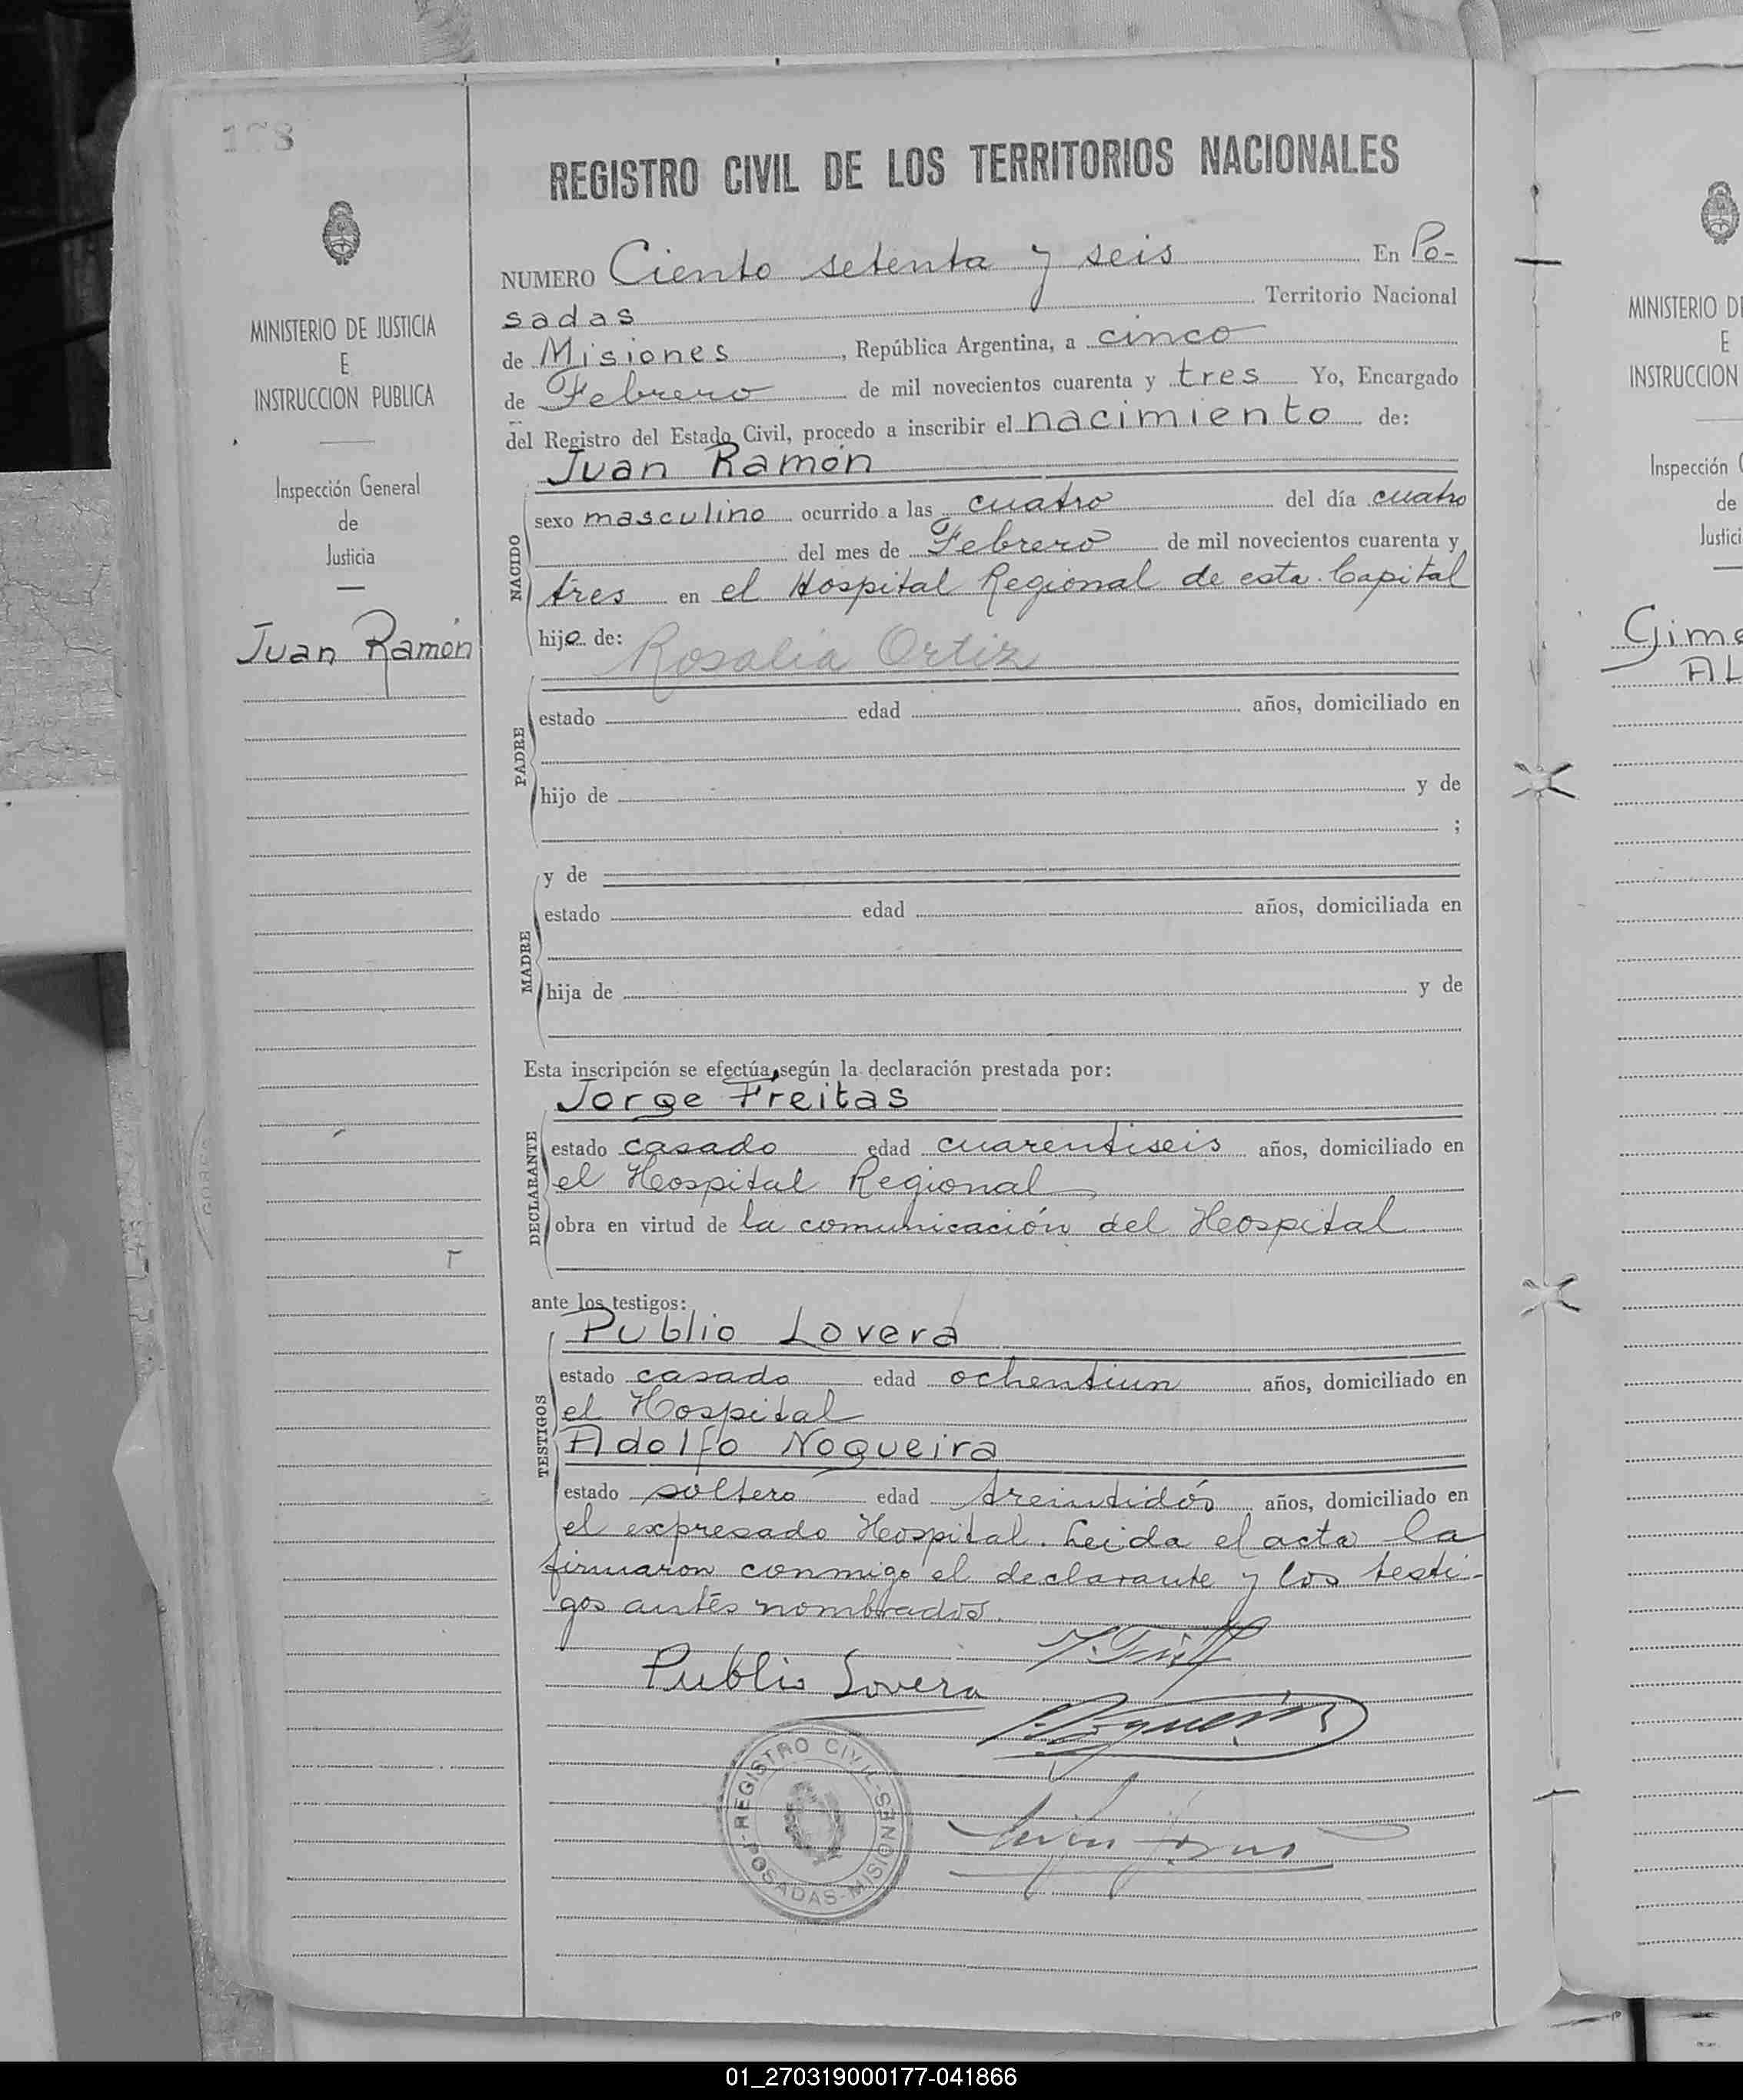 178
REGISTRO CIVIL DE LOS TERRITORIOS NACIONALES
MINISTERIO DE JUSTICIA
E
INSTRUCCION PUBLICA
Inspección General
de
Justicia
Juan Ramón
NUMERO Ciento setenta y seis En Po-
sadas Territorio Nacional
de Misiones, República Argentina, a cinco
de Febrero de mil novecientos cuarenta y tres Yo, Encargado
del Registro del Estado Civil, procedo a inscribir el nacimiento de:
Juan Ramón
NACIDO
sexo masculino ocurrido a las cuatro del día cuatro
del mes de Febrero de mil novecientos cuarenta y
tres en el Hospital Regional de esta Capital
hijo de:
Rosalia Ortiz
PADRE
estado edad años, domiciliado en
hijo de y de
;
MADRE
y de
estado edad años, domiciliada en
hija de y de
Esta inscripción se efectúa, según la declaración prestada por:
Jorge Freitas
DECLARANTE
estado casado edad cuarentiseis años, domiciliado en
el Hospital Regional
obra en virtud de la comunicación del Hospital
ante los testigos:
Publio Lovera
TESTIGOS
estado casado edad ochentiun años, domiciliado en
el Hospital
Adolfo Nogueira
estado soltero edad treintidós años, domiciliado en
el expresado Hospital. Leida el acta la
firmaron conmigo el declarante y los testi-
gos antes nombrados.
Publio Lovera
REGISTRO CIVIL-MISIONES-POSADAS-
MINISTERIO DE
E
INSTRUCCION
Inspección G
de
Justici
Gime
AL
01_270319000177-041866